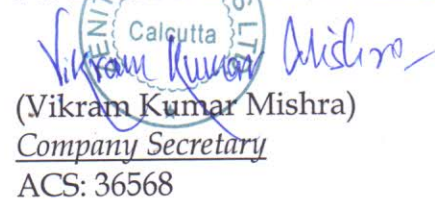 Calcutta
Vikram Kumar Mishra
(Vikram Kumar Mishra)
Company Secretary
ACS: 36568